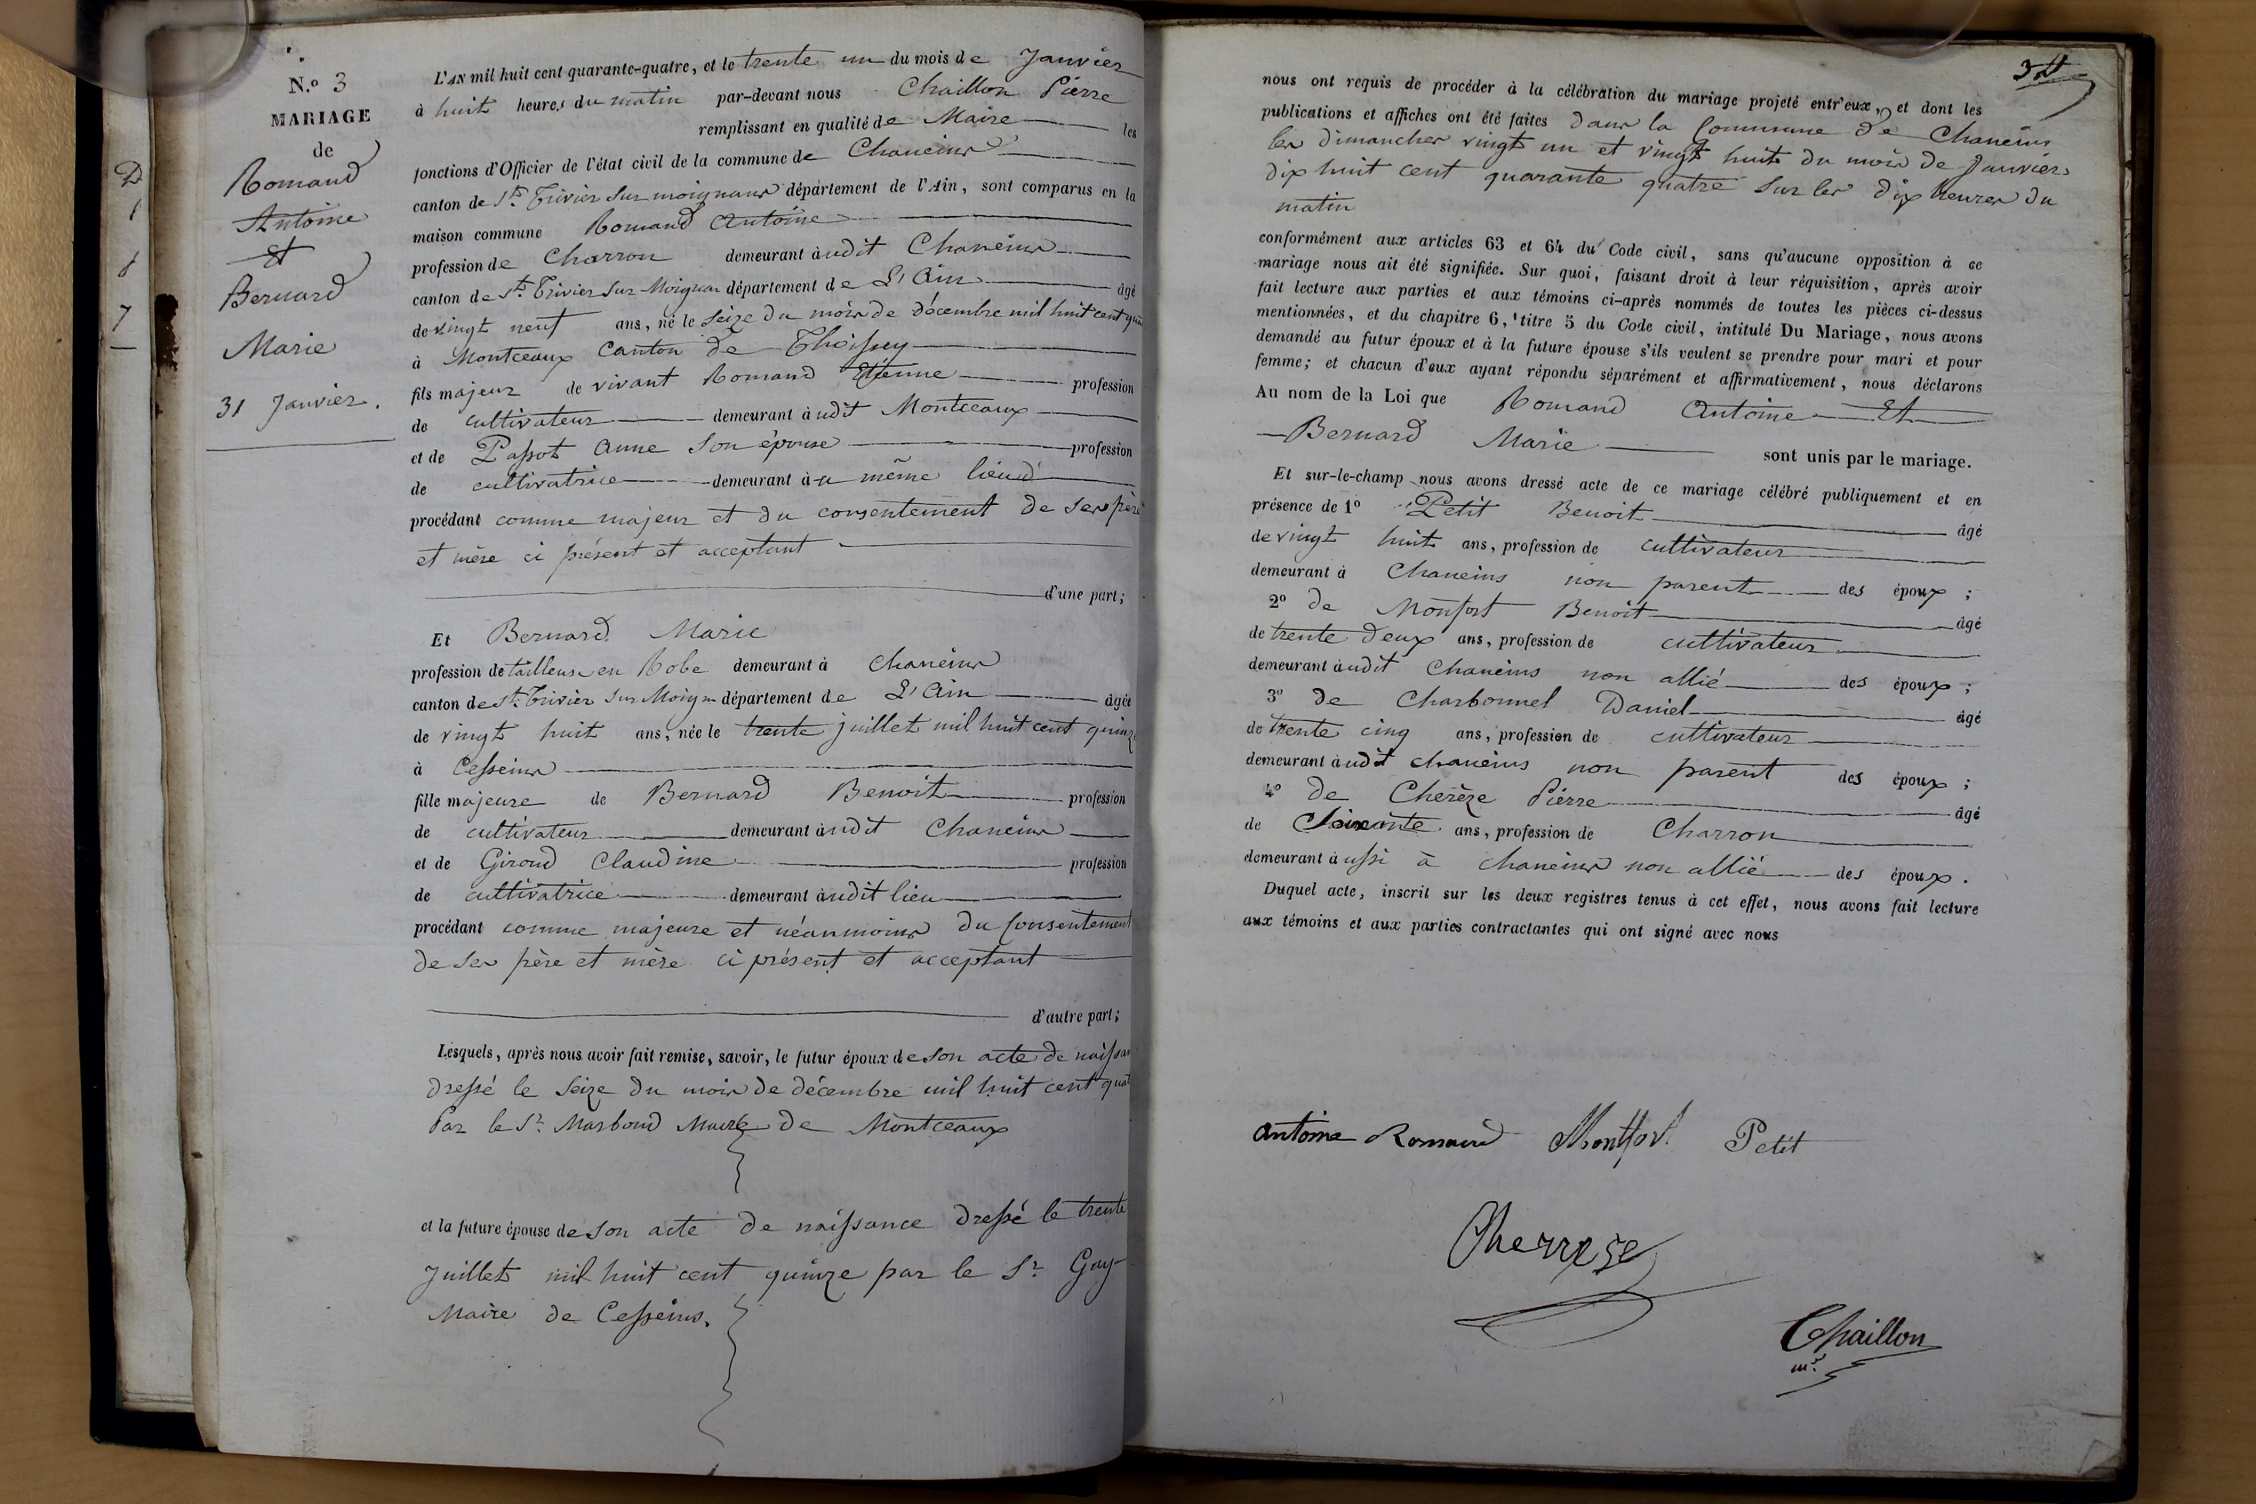 N.o 3
MARIAGE
de
Romand
Antoine
Et
Bernard
Marie
31 Janvier.
L'AN mil huit cent quarante-quatre, et le trente un du mois de Janvier
à huit heures du matin par-devant nous Chaillon Pierre
remplissant en qualité de Maire les
fonctions d'Officier de l'état civil de la commune de Chaneins
canton de St. Trivier sur moignans département de l'Ain, sont comparus en la
maison commune Romand Antoine
profession de Charron demeurant àudit Chaneins
canton de St. Trivier sur Moignan département de L'Ain âgé
de vingt neuf ans, né le seize du mois de décembre mil huit cent
à Montceaux Canton de Thoissey
fils majeur de vivant Romand Etienne profession
de cultivateur demeurant àudit Montceaux
et de Passot Anne son épouse profession
de cultivatrice demeurant àu même lieud
procédant comme majeur et du consentement de ses père
et mère ci présent et acceptant
d'une part;
Et Bernard Marie
profession de tailleuse en Robe demeurant à Chaneins
canton de St. Trivier sur Moign département de L'Ain âgée
de vingt huit ans, née le trente juillet mil huit cent quinze
à Cesseins
fille majeure de Bernard Benoit profession
de cultivateur demeurant àudit Chaneins
et de Giroud Claudine profession
de cultivatrice demeurant àudit lieu
procédant comme majeure et néanmoins du Consentement
de ses père et mère ci présent et acceptant
d'autre part;
Lesquels, après nous avoir fait remise, savoir, le futur époux de son acte de naissan
dressé le seize du mois de décembre mil huit cent quat
Par le Sr. Marboud Maire de Montceaux
et la future épouse de son acte de naissance dressé le trente
Juillet mil huit cent quinze par le Sr. Gay
Maire de Cesseins.
nous ont requis de procéder à la célébration du mariage projeté entr'eux, et dont les
publications et affiches ont été faites dans la Commune de Chaneins
les dimanches vingt un et vingt huit du mois de Janvier
dix huit cent quarante quatre sur les dix heures du
matin
conformément aux articles 63 et 64 du Code civil, sans qu'aucune opposition à ce
mariage nous ait été signifiée. Sur quoi, faisant droit à leur réquisition, après avoir
fait lecture aux parties et aux témoins ci-après nommés de toutes les pièces ci-dessus
mentionnées, et du chapitre 6, titre 5 du Code civil, intitulé Du Mariage, nous avons
demandé au futur époux et à la future épouse s'ils veulent se prendre pour mari et pour
femme; et chacun d'eux ayant répondu séparément et affirmativement, nous déclarons
Au nom de la Loi que Romand Antoine Et
Bernard Marie sont unis par le mariage.
Et sur-le-champ nous avons dressé acte de ce mariage célébré publiquement et en
présence de 1o Petit Benoit âgé
de vingt huit ans, profession de cultivateur
demeurant à Chaneins non parent des époux;
2o de Monfort Benoit âgé
de trente deux ans, profession de cultivateur
demeurant àudit Chaneins non allié des époux;
3o de Charbonnel Daniel âgé
de trente cinq ans, profession de cultivateur
demeurant àudit chaneins non parent des époux;
4o de Cherèze Pierre âgé
de Soixante ans, profession de Charron
demeurant àussi à chaneins non allié des époux.
Duquel acte, inscrit sur les deux registres tenus à cet effet, nous avons fait lecture
aux témoins et aux parties contractantes qui ont signé avec nous
antoine Romand Montfort Petit
Cherreze
Chaillon